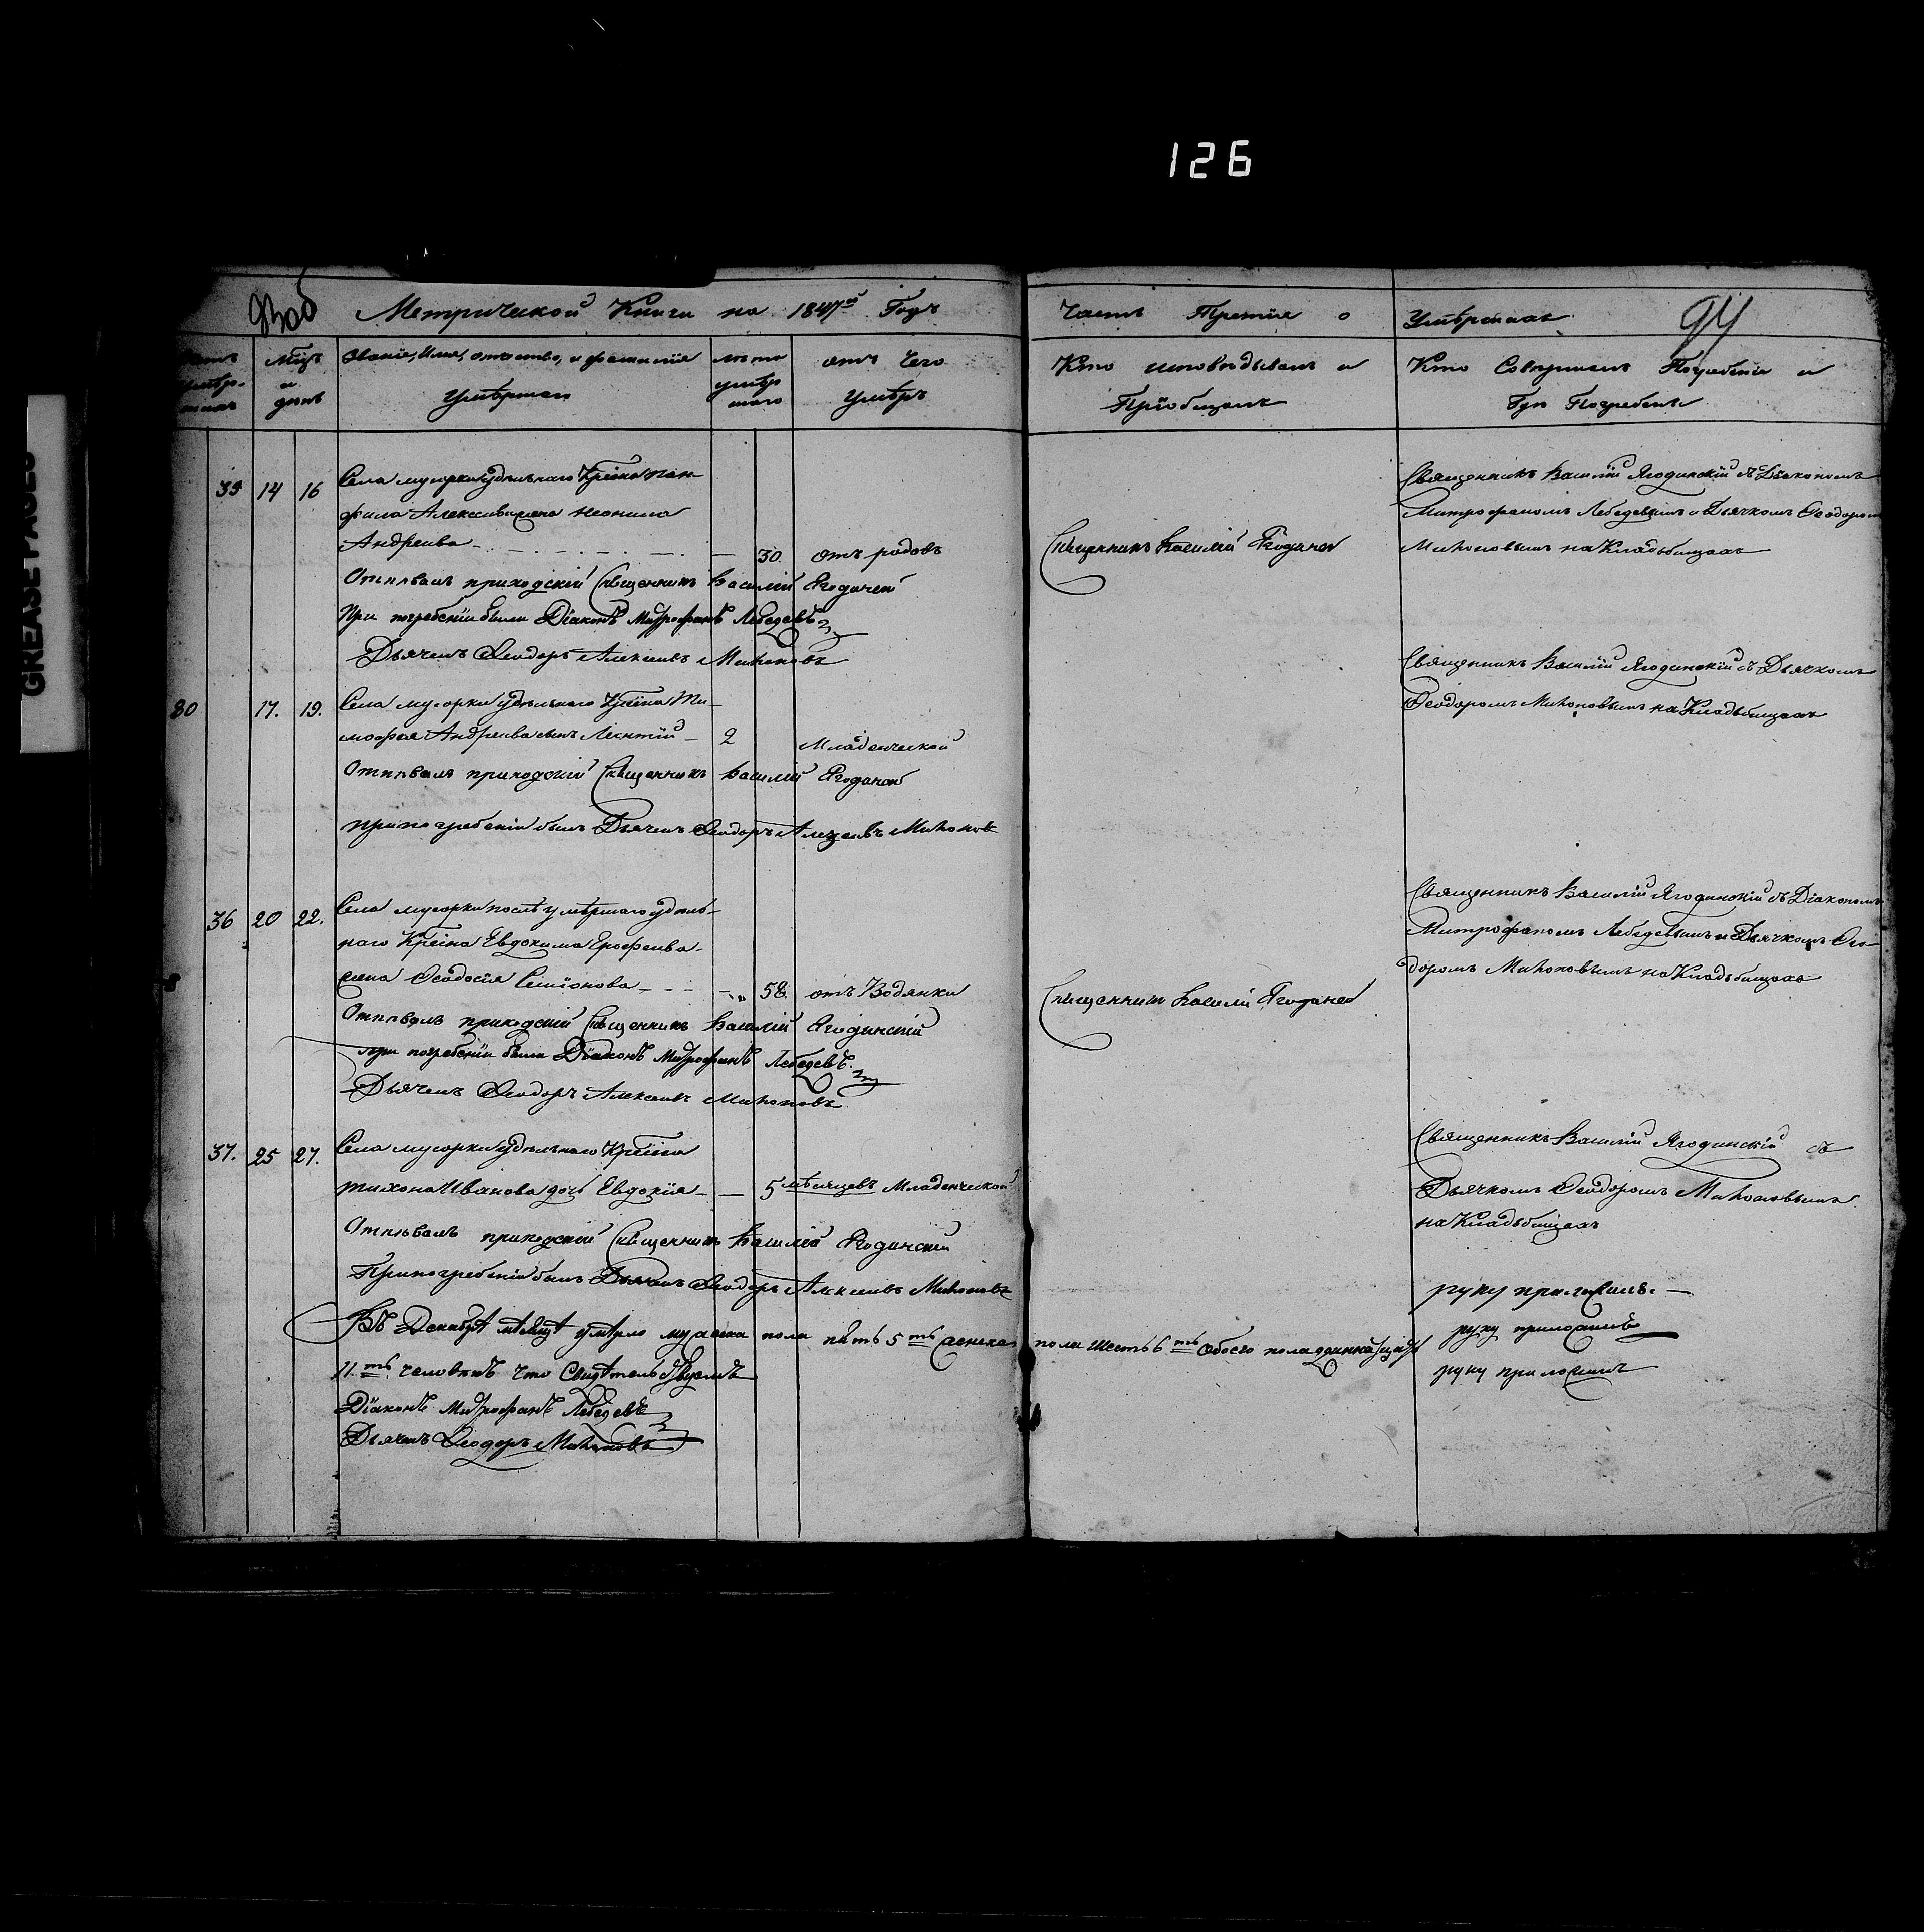 126
GREASE PAGES
93 об Метрической Книги на 1847й Годъ
Часть Третiя о Умѣршихъ. 94
Мцъ и день
Званiе, Имя, отчество, и фамилiя Умѣршаго
лѣта умѣршаго
отъ Чего Умѣръ
Кто исповѣдывалъ и Прiобщалъ
Кто Совершалъ Погребенiе и Гдѣ Погребенъ
35 14 16 Села мусорки удѣльнаго Крѣсна пан-
фила Алексѣева жена Неонила
Андреева — 30. отъ родовъ
Отпѣвалъ приходскiй Священникъ Василiй Ягодинскiй
При погребенiи были Дiаконъ Митрофанъ Лебедевъ
Дьячекъ Ѳеодоръ Алексѣевъ Миhоновъ
Священникъ Василiй Ягодинскiй
Священникъ Василiй Ягодинскiй съ Дiакономъ
Митрофаномъ Лебедевымъ и Дьячкомъ Ѳеодоромъ
Миhоновымъ на Кладьбищахъ
30 17. 19. Села мусорки удѣльнаго Крѣсна Ти-
моѳея Андреева сынъ Леонтiй — 2 Младенческой
Отпѣвалъ приходскiй Священникъ Василiй Ягодинскiй
при погребенiи былъ Дьячекъ Ѳеодоръ Алексѣевъ Миhоновъ
Священникъ Василiй Ягодинскiй съ Дьячкомъ
Ѳеодоромъ Миhоновымъ на Кладьбищахъ
36 20 22. Села мусорки послѣ умѣршаго удѣль-
наго Крѣсна Евдокима Ерофеева
жена Ѳеодосiя Семiонова — 58 отъ Водянки
Отпѣвалъ приходскiй Священникъ Василiй Ягодинскiй
при погребенiи были Дiаконъ Митрофанъ Лебедевъ.
Дьячекъ Ѳеодоръ Алексѣевъ Миhоновъ
Священникъ Василiй Ягодинскiй
Священникъ Василiй Ягодинскiй съ Дiакономъ
Митрофаномъ Лебедевымъ и Дьячкомъ Ѳео-
доромъ Миhоновымъ на Кладьбищахъ
37. 25 27. Села мусорки удѣльнаго Крѣсна
тихона Иванова дочь Евдокiя — 5 мѣсяцевъ Младенческой
Отпѣвалъ приходской Священникъ Василiй Ягодинскiй
При погребенiи былъ Дьячекъ Ѳеодоръ Алексѣевъ Миhоновъ
Священникъ Василiй Ягодинскiй съ
Дьячкомъ Ѳеодоромъ Миhоновымъ
на Кладьбищахъ
Въ Декабрѣ мѣсяцѣ умѣрло мужеска пола пять 5ть женска пола шесть 6ть обоего пола одиннадцать
11.ть человѣкъ что Свидѣтельствуемъ
Дiаконъ Митрофанъ Лебедевъ
Дьячекъ Ѳеодоръ Миhоновъ
руку приложилъ. —
руку приложилъ
руку приложилъ